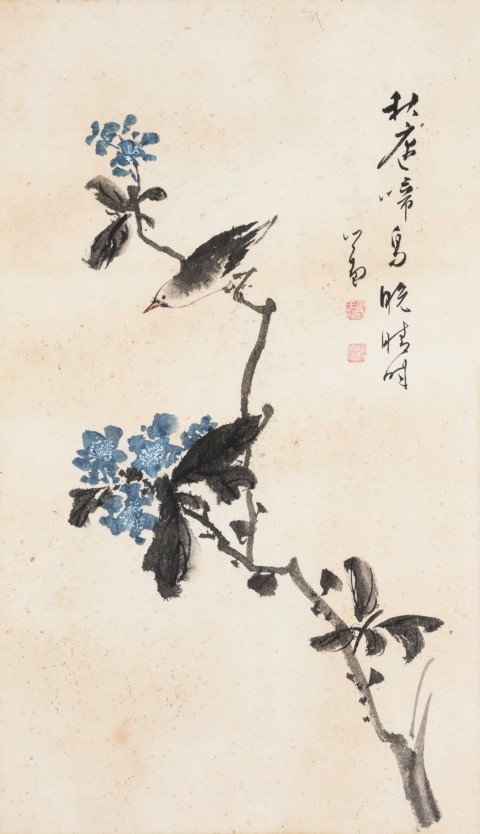 秋庭啼鳥晚晴时
心畬